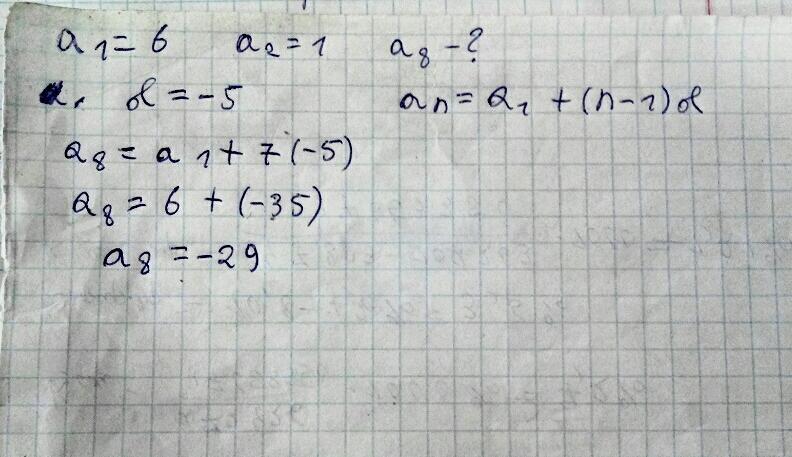 a₁ = 6 a₂ = 1 a₈ - ?
d = -5 aₙ = a₁ + (n-1)d
a₈ = a₁ + 7(-5)
a₈ = 6 + (-35)
a₈ = -29